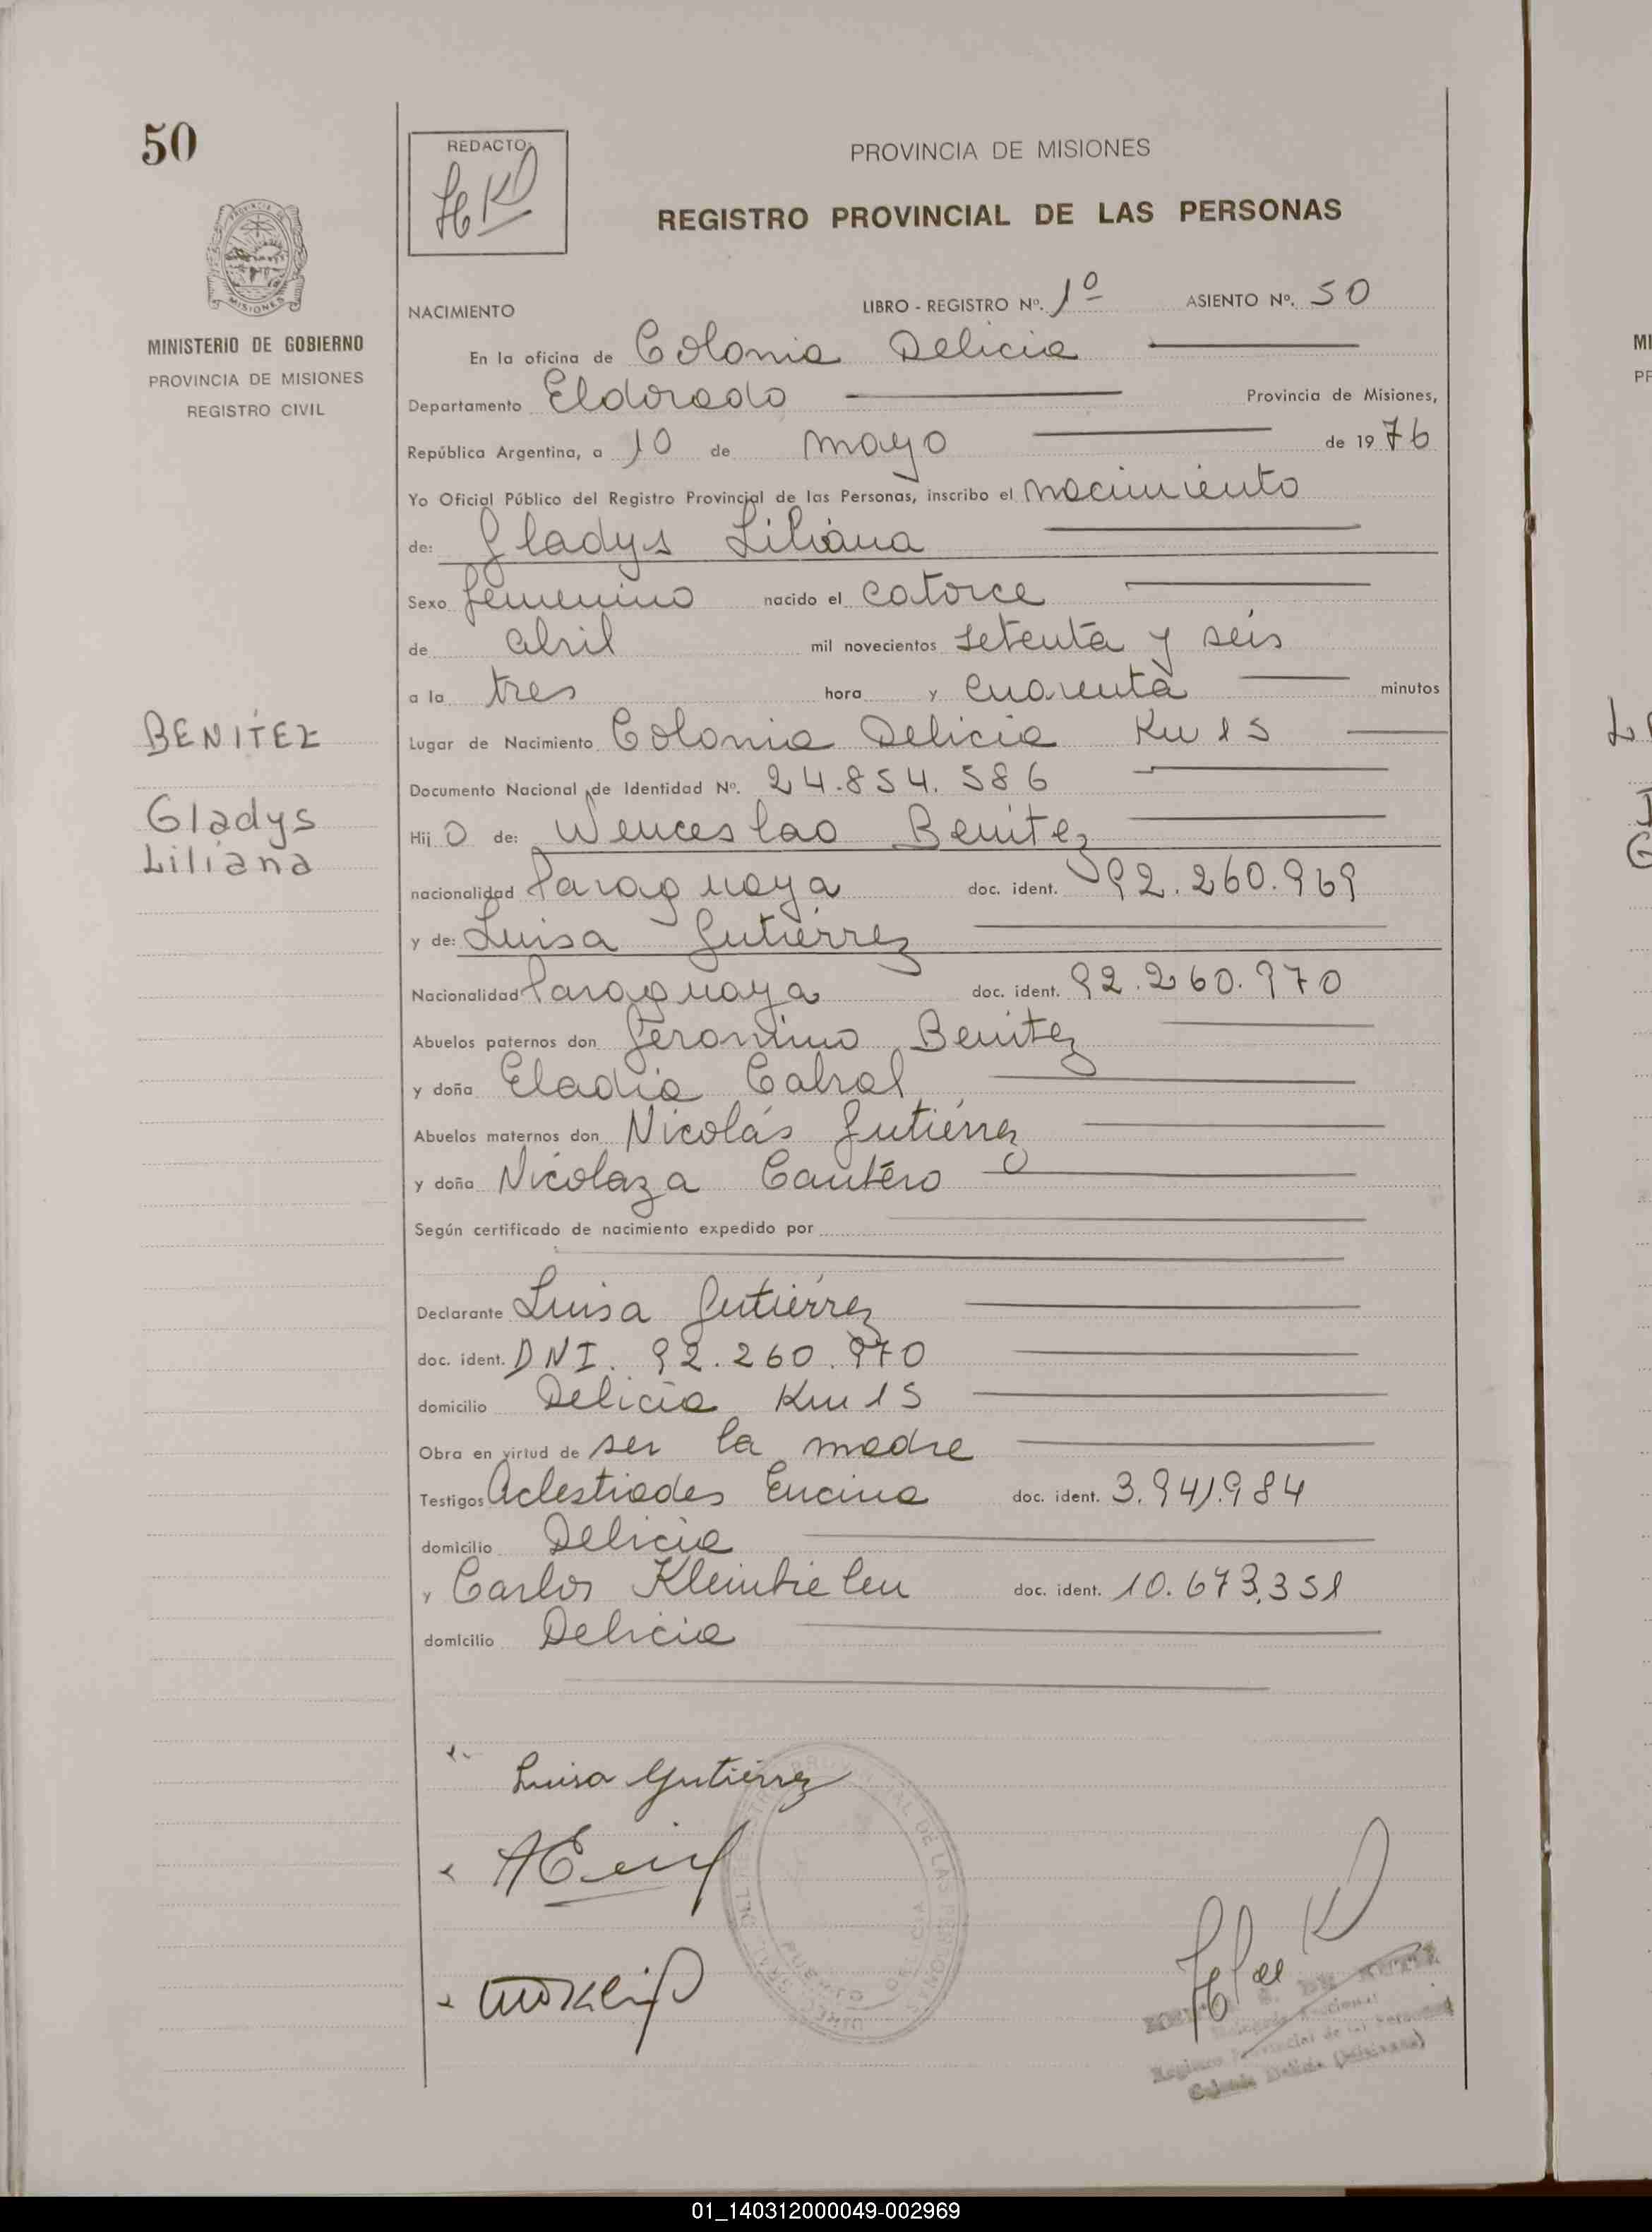 50
REDACTO:
PROVINCIA DE MISIONES
REGISTRO PROVINCIAL DE LAS PERSONAS
MISIONES
MINISTERIO DE GOBIERNO
PROVINCIA DE MISIONES
REGISTRO CIVIL
NACIMIENTO LIBRO - REGISTRO Nº. 1º ASIENTO Nº. 50
En la oficina de Colonia Delicia
Departamento Eldorado Provincia de Misiones,
República Argentina, a 10 de mayo de 1976
Yo Oficial Público del Registro Provincial de las Personas, inscribo el nacimiento
de: Gladys Liliana
Sexo femenino nacido el catorce
de abril mil novecientos setenta y seis
a la tres hora y cuarenta minutos
BENÍTEZ
Lugar de Nacimiento Colonia Delicia Km 15
Documento Nacional de Identidad Nº. 24.854.586
Gladys
Liliana
Hij o de: Wenceslao Benítez
nacionalidad Paraguaya doc. ident. 92.260.969
y de: Luisa Gutiérrez
Nacionalidad Paraguaya doc. ident. 92.260.970
Abuelos paternos don Gerónimo Benítez
y doña Eladia Cabral
Abuelos maternos don Nicolás Gutiérrez
y doña Nicolaza Cantero
Según certificado de nacimiento expedido por
Declarante Luisa Gutiérrez
doc. ident. DNI. 92.260.970
domicilio Delicia Km 15
Obra en virtud de ser la madre
Testigos Aclestiades Encina doc. ident. 3.941.984
domicilio Delicia
y Carlos doc. ident. 10.673.351
domicilio Delicia
Luisa Gutiérrez
Colonia Delicia (Misiones)
01_140312000049-002969